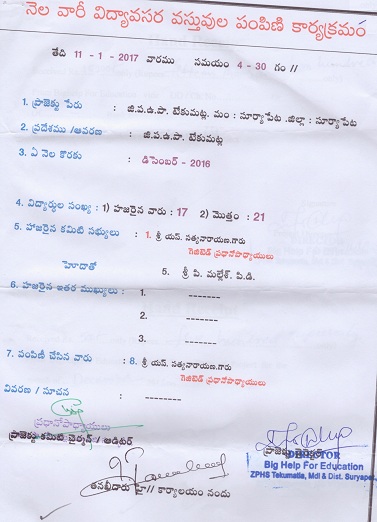 నెల వారీ విద్యావసర వస్తువుల పంపిణి కార్యక్రమం
తేది 11 - 1 - 2017 వారము సమయం 4 - 30 గం //
1. ప్రాజెక్టు పేరు : జి.ప.ఉ.పా. టేకుమట్ల. మం : సూర్యాపేట .జిల్లా : సూర్యాపేట
2. ప్రదేశము /ఆవరణ : జి.ప.ఉ.పా. టేకుమట్ల
3. ఏ నెల కొరకు : డిసెంబర్ - 2016
4. విద్యార్థుల సంఖ్య : 1) హజరైన వారు : 17 2) మొత్తం : 21
5. హాజరైన కమిటి సభ్యులు : 1. శ్రీ యస్. సత్యనారాయణ.గారు
గెజిటెడ్ ప్రధానోపాధ్యాయులు
హెూదాతో 5. శ్రీ పి. మల్లేశ్. పి.డి.
6. హజరైన ఇతర ముఖ్యులు : 1. -------
2. -------
3. -------
7. పంపిణీ చేసిన వారు : 8. శ్రీ యస్. సత్యనారాయణ.గారు
గెజిటెడ్ ప్రధానోపాధ్యాయులు
వివరణ / సూచన : --------
ప్రధానోపాధ్యాయులు
ప్రాజెక్టు కమిటి చైర్మన్ / అడిటర్
ప్రాజెక్టు
DIRECTOR
Big Help For Education
ZPHS Tekumatla, Mdl & Dist. Suryapet
తనఖీదారు హై// కార్యాలయం నందు